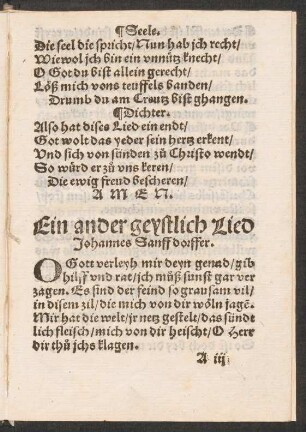 ¶Seele.
Die seel die spricht/Nun hab jch recht/
Wiewol jch bin ein vnnütz knecht/
O Got du bist allein gerecht/
Löß mich vons teuffels banden/
Drumb du am Creutz bist ghangen.
¶Dichter.
Also hat dises Lied ein endt/
Got wolt das yeder sein hertz erkent/
Vnd sich von sünden zů Christo wendt/
So würd er zů vns keren/
Die ewig freud bescheren/
A M E N.
Ein ander geystlich Lied
Johannes Sanffdorffer.
O Gott verleyh mir deyn genad/gib
hilff vnd rat/jch můß sunst gar ver
zagen. Es sind der feind so grausam vil/
in disem zil/die mich von dir wöln jagē.
Mir hat die welt/jr netz gestelt/das sündt
lich fleisch/mich von dir heischt/O Herr
dir thů jchs klagen.
A iij